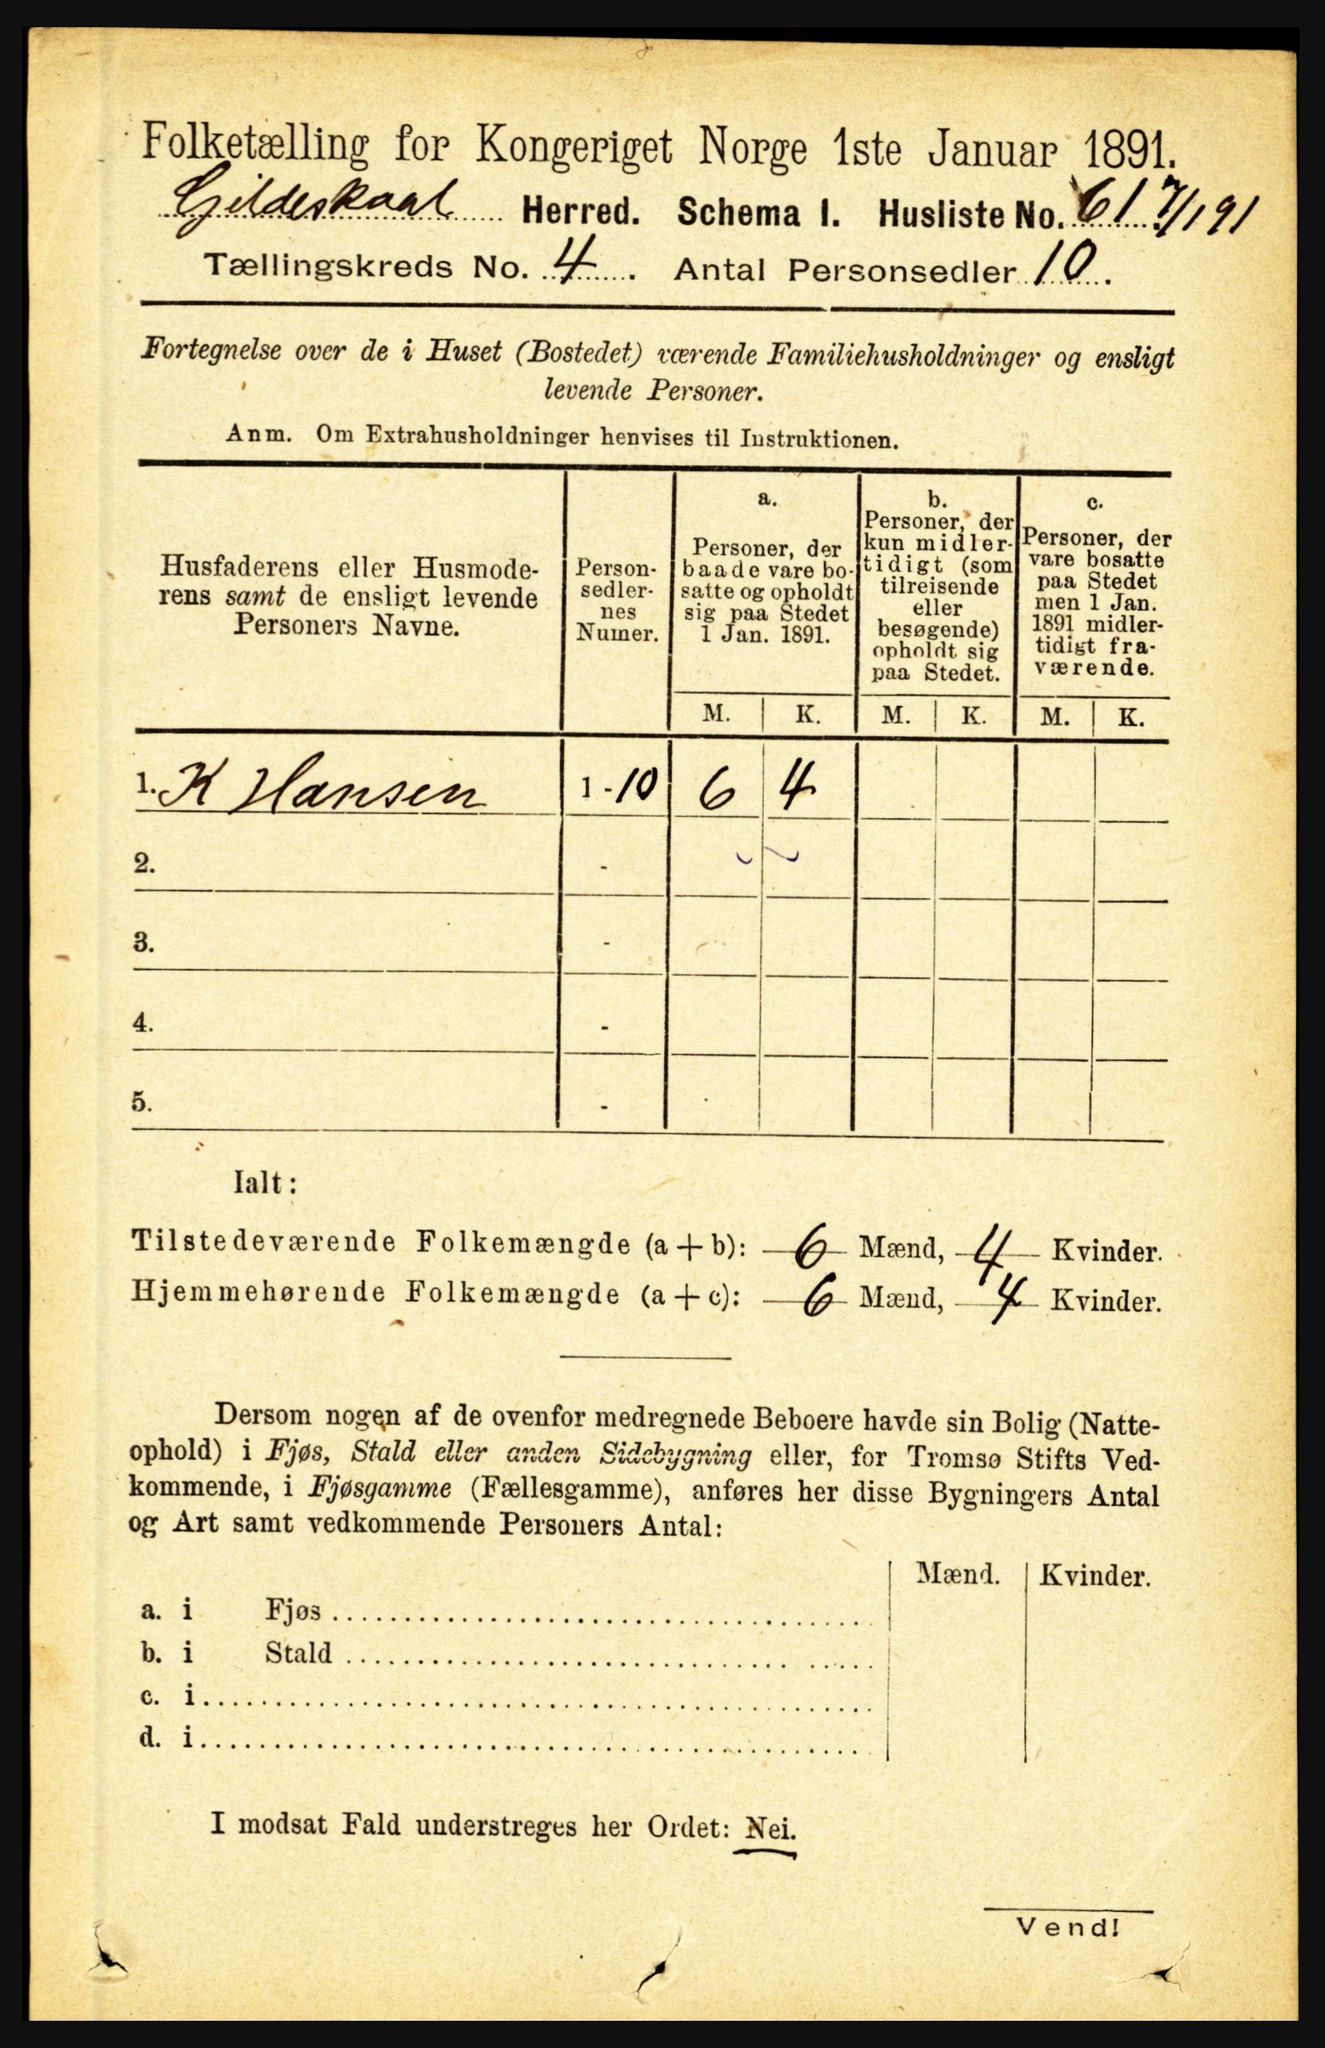 Folketælling for Kongeriget Norge 1ste Januar 1891.
Gildeskaal Herred. Schema I. Husliste No. 61 7/1 91
Tællingskreds No. 4. Antal Personsedler 10.
Fortegnelse over de i Huset (Bostedet) værende Familiehusholdninger og ensligt
levende Personer.
Anm. Om Extrahusholdninger henvises til Instruktionen.
Husfaderens eller Husmode-
rens samt de ensligt levende
Personers Navne.
Person-
sedler-
nes
Numer.
a.
Personer, der
baade vare bo-
satte og opholdt
sig paa Stedet
1 Jan. 1891.
b.
Personer, der
kun midler-
tidigt (som
tilreisende
eller
besøgende)
opholdt sig
paa Stedet.
c.
Personer, der
vare bosatte
paa Stedet
men 1 Jan.
1891 midler-
tidigt fra-
værende.
M. K. M. K. M. K.
1. K Hansen 1-10 6 4
2. -
3. -
4. -
5. -
Ialt:
Tilstedeværende Folkemængde (a+b): 6 Mænd, 4 Kvinder.
Hjemmehørende Folkemængde (a+c): 6 Mænd, 4 Kvinder.
Dersom nogen af de ovenfor medregnede Beboere havde sin Bolig (Natte-
ophold) i Fjøs, Stald eller anden Sidebygning eller, for Tromsø Stifts Ved-
kommende, i Fjøsgamme (Fællesgamme), anføres her disse Bygningers Antal
og Art samt vedkommende Personers Antal:
Mænd. Kvinder.
a. i Fjøs
b. i Stald
c. i
d. i
I modsat Fald understreges her Ordet: Nei.
Vend!